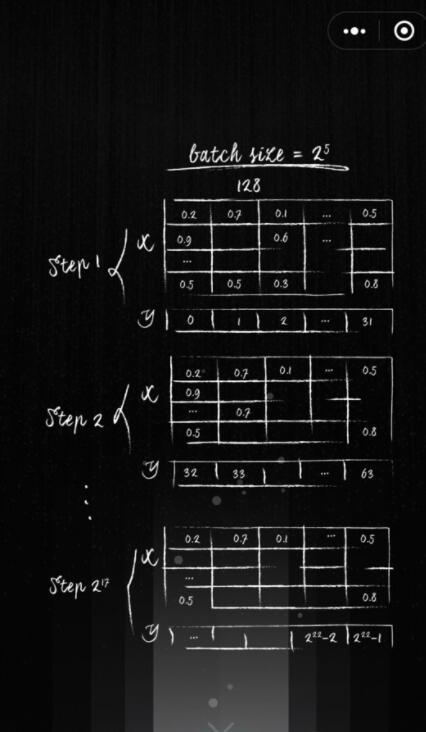 batch size = 2⁵
128
Step 1
x
0.2 0.7 0.1 ... 0.5
0.9 0.6 ...
...
0.5 0.5 0.3 0.8
y 0 1 2 ... 31
Step 2
x
0.2 0.7 0.1 ... 0.5
0.9
... 0.7
0.5 0.8
y 32 33 ... 63
⋮
Step 2¹⁷
x
0.2 0.7 0.1 ... 0.5
...
0.5 0.8
y ... 2²²-2 2²²-1